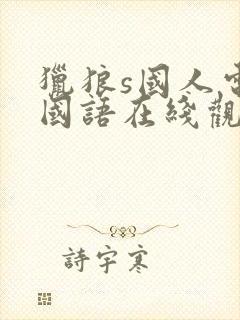 獵狼s國人
國語在綫觀
詩宇寒